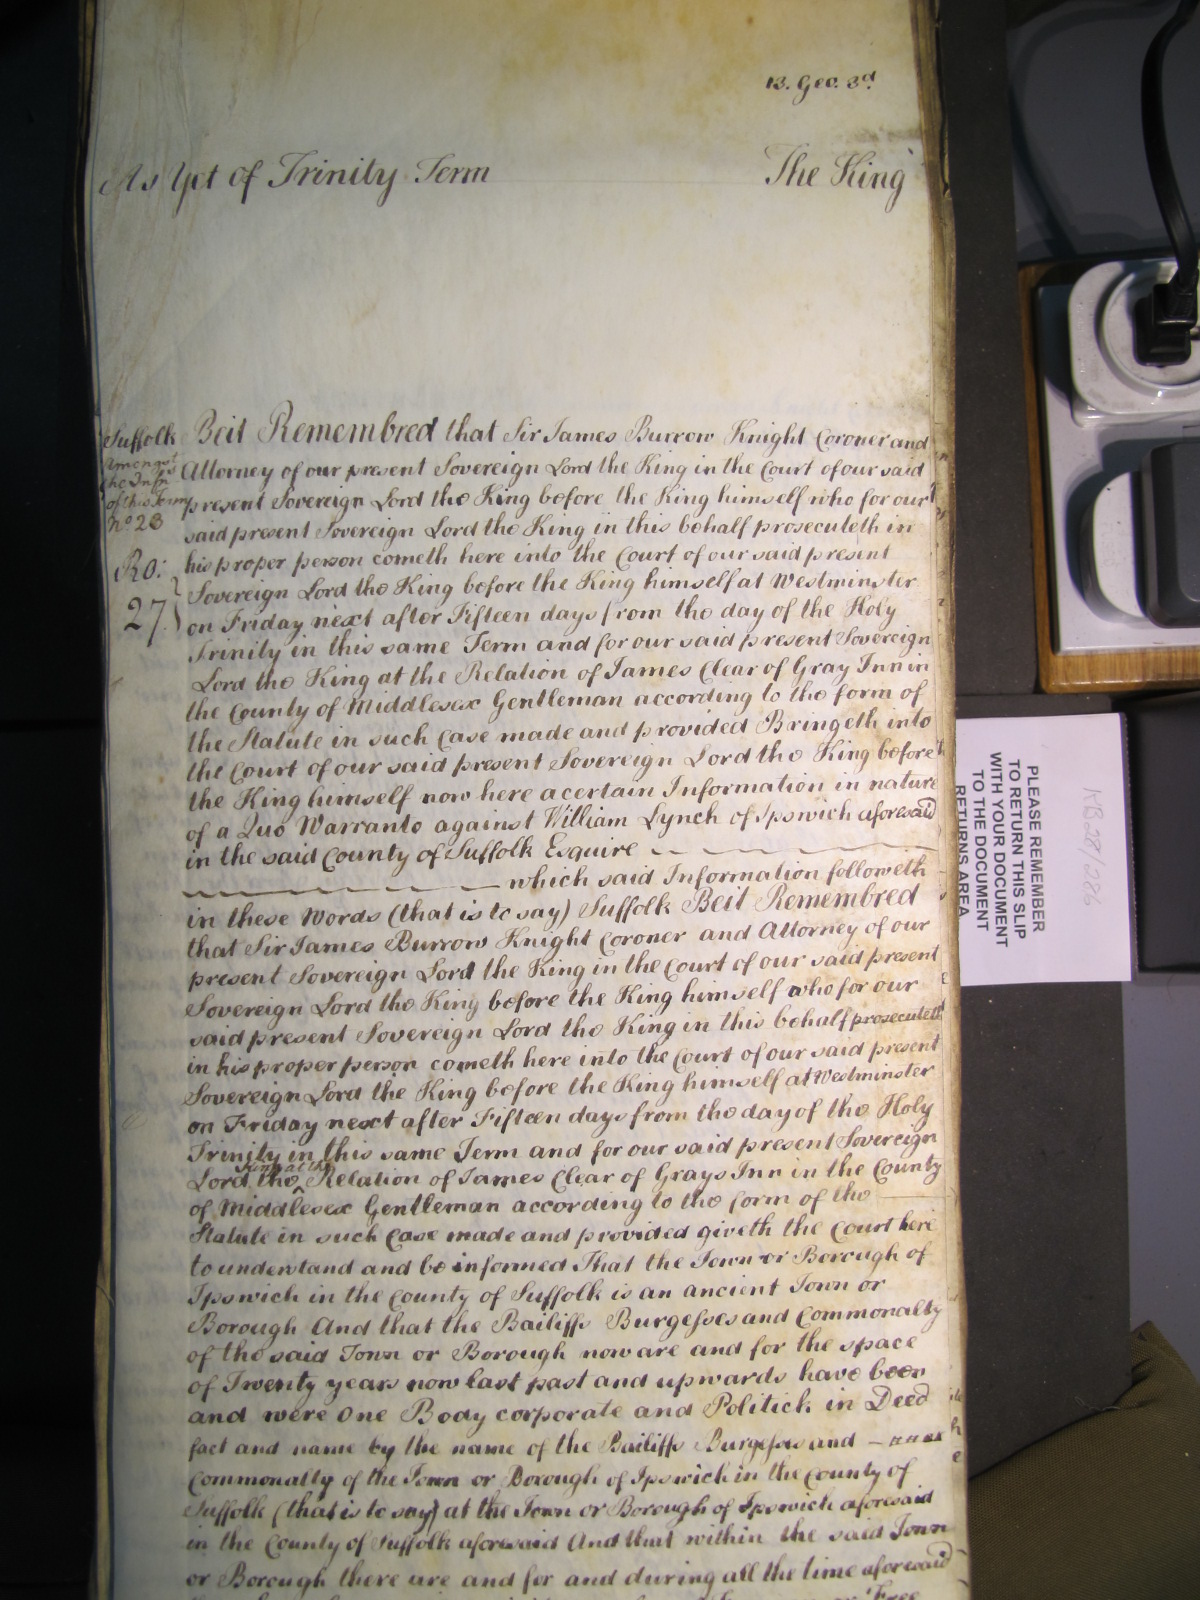 13. Geo. 3d
As Yet of Trinity Term The King
Suffolk Beit Remembred that Sir James Burrow Knight Coroner and
Amongst Attorney of our present Sovereign Lord the King in the Court of our said
the Infns
of this Term present Sovereign Lord the King before the King himself who for our
No 23 said present Sovereign Lord the King in this behalf prosecuteth in
Ro: his proper person cometh here into the Court of our said present
27 Sovereign Lord the King before the King himself at Westminster
on Friday next after Fifteen days from the day of the Holy
Trinity in this same Term and for our said present Sovereign
Lord the King at the Relation of James Clear of Gray Inn in
the County of Middlesex Gentleman according to the form of
the Statute in such Case made and provided Bringeth into
the Court of our said present Sovereign Lord the King before
the King himself now here a certain Information in nature
of a Quo Warranto against William Lynch of Ipswich aforesaid
in the said County of Suffolk Esquire
which said Information followeth
in these Words (that is to say) Suffolk Beit Remembred
that Sir James Burrow Knight Coroner and Attorney of our
present Sovereign Lord the King in the Court of our said present
Sovereign Lord the King before the King himself who for our
said present Sovereign Lord the King in this behalf prosecuteth
in his proper person cometh here into the Court of our said present
Sovereign Lord the King before the King himself at Westminster
on Friday next after Fifteen days from the day of the Holy
Trinity in this same Term and for our said present Sovereign
King at the
Lord the Relation of James Clear of Grays Inn in the County
of Middlesex Gentleman according to the form of the
Statute in such Case made and provided giveth the Court here
to understand and be informed That the Town or Borough of
Ipswich in the County of Suffolk is an ancient Town or
Borough And that the Bailiffs Burgesses and Commonalty
of the said Town or Borough now are and for the space
of Twenty years now last past and upwards have been
and were One Body corporate and Politick in Deed
fact and name by the name of the Bailiffs Burgesses and
Commonalty of the Town or Borough of Ipswich in the County of
Suffolk (that is to say) at the Town or Borough of Ipswich aforesaid
in the County of Suffolk aforesaid And that within the said Town
or Borough there are and for and during all the time aforesaid
Free
KB28/286
PLEASE REMEMBER
TO RETURN THIS SLIP
WITH YOUR DOCUMENT
TO THE DOCUMENT
RETURNS AREA